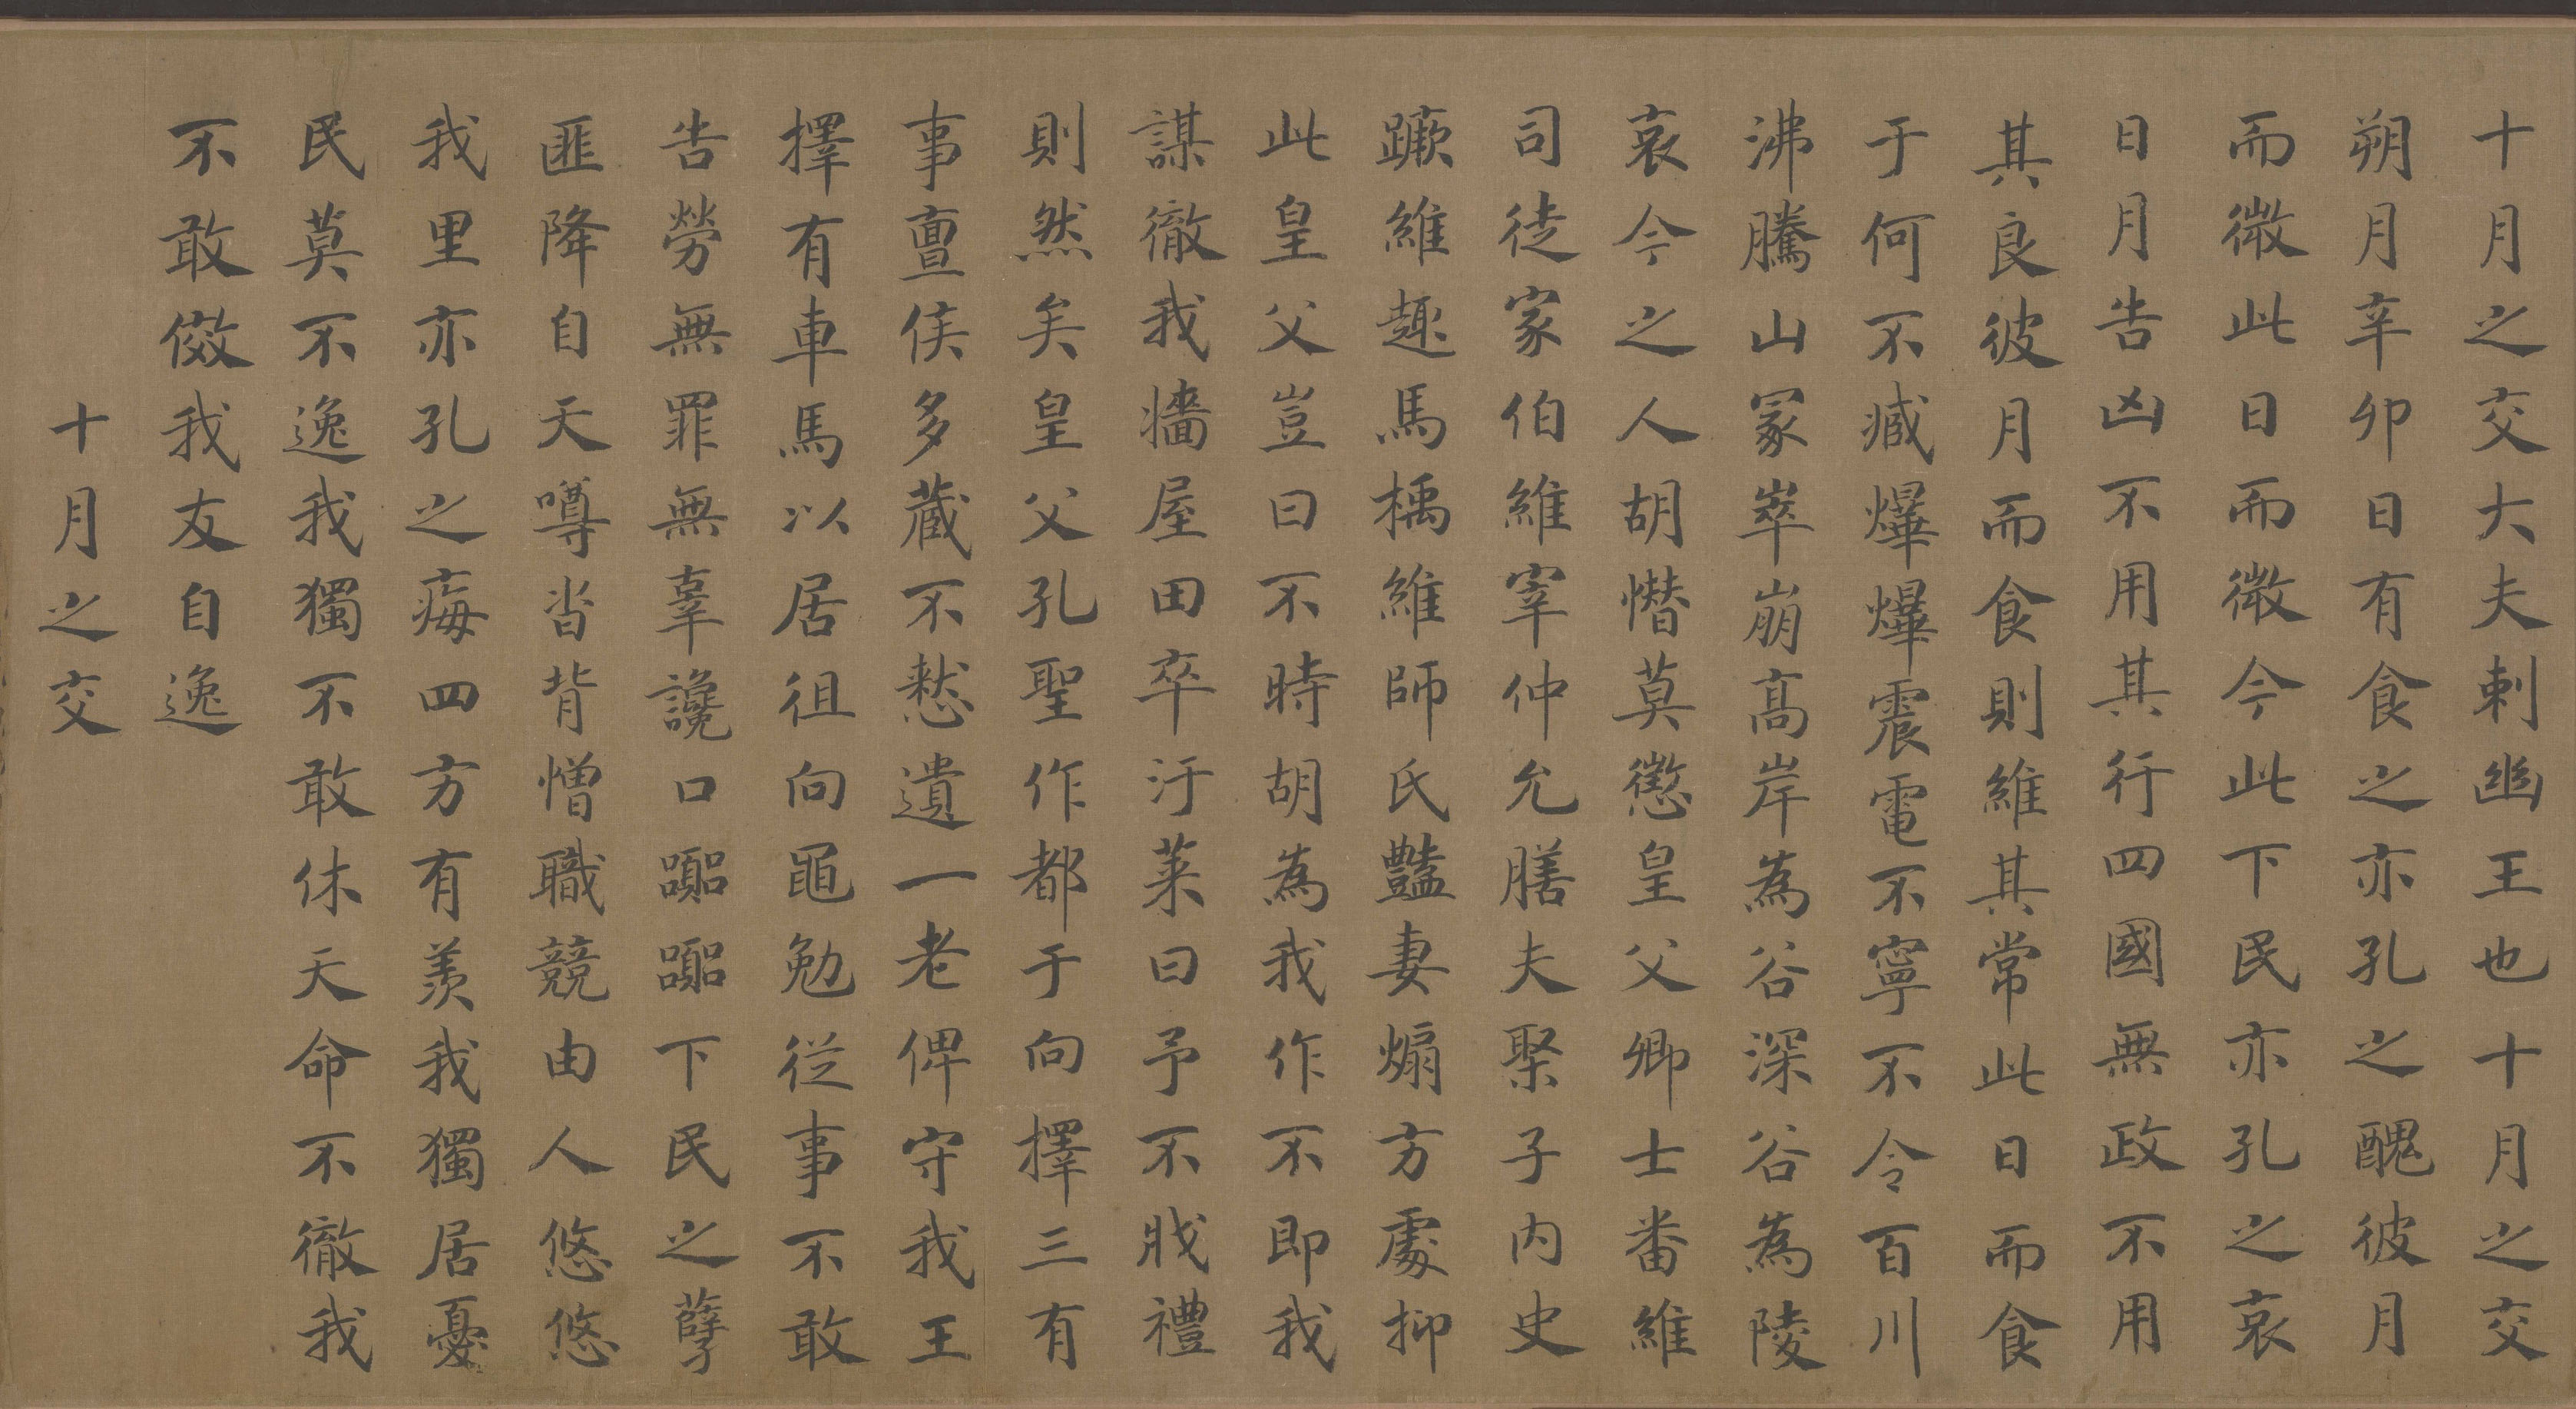 十月之交大夫刺幽王也十月之交
朔月辛卯日有食之亦孔之醜彼月
而微此日而微今此下民亦孔之哀
日月告凶不用其行四國無政不用
其良彼月而食則維其常此日而食
于何不臧爗爗震電不寧不令百川
沸騰山冢崒崩髙岸為谷深谷為陵
哀今之人胡憯莫懲皇父卿士番維
司徒家伯維宰仲允膳夫棸子内史
蹶維趣馬楀維師氏豔妻煽方處抑
此皇父豈曰不時胡為我作不即我
謀徹我牆屋田卒汙萊曰予不戕禮
則然矣皇父孔聖作都于向擇三有
事亶侯多藏不憖遺一老俾守我王
擇有車馬以居徂向黽勉從事不敢
告勞無罪無辜讒口嚻嚻下民之孽
匪降自天噂沓背憎職競由人悠悠
我里亦孔之痗四方有羨我獨居憂
民莫不逸我獨不敢休天命不徹我
不敢傚我友自逸
十月之交